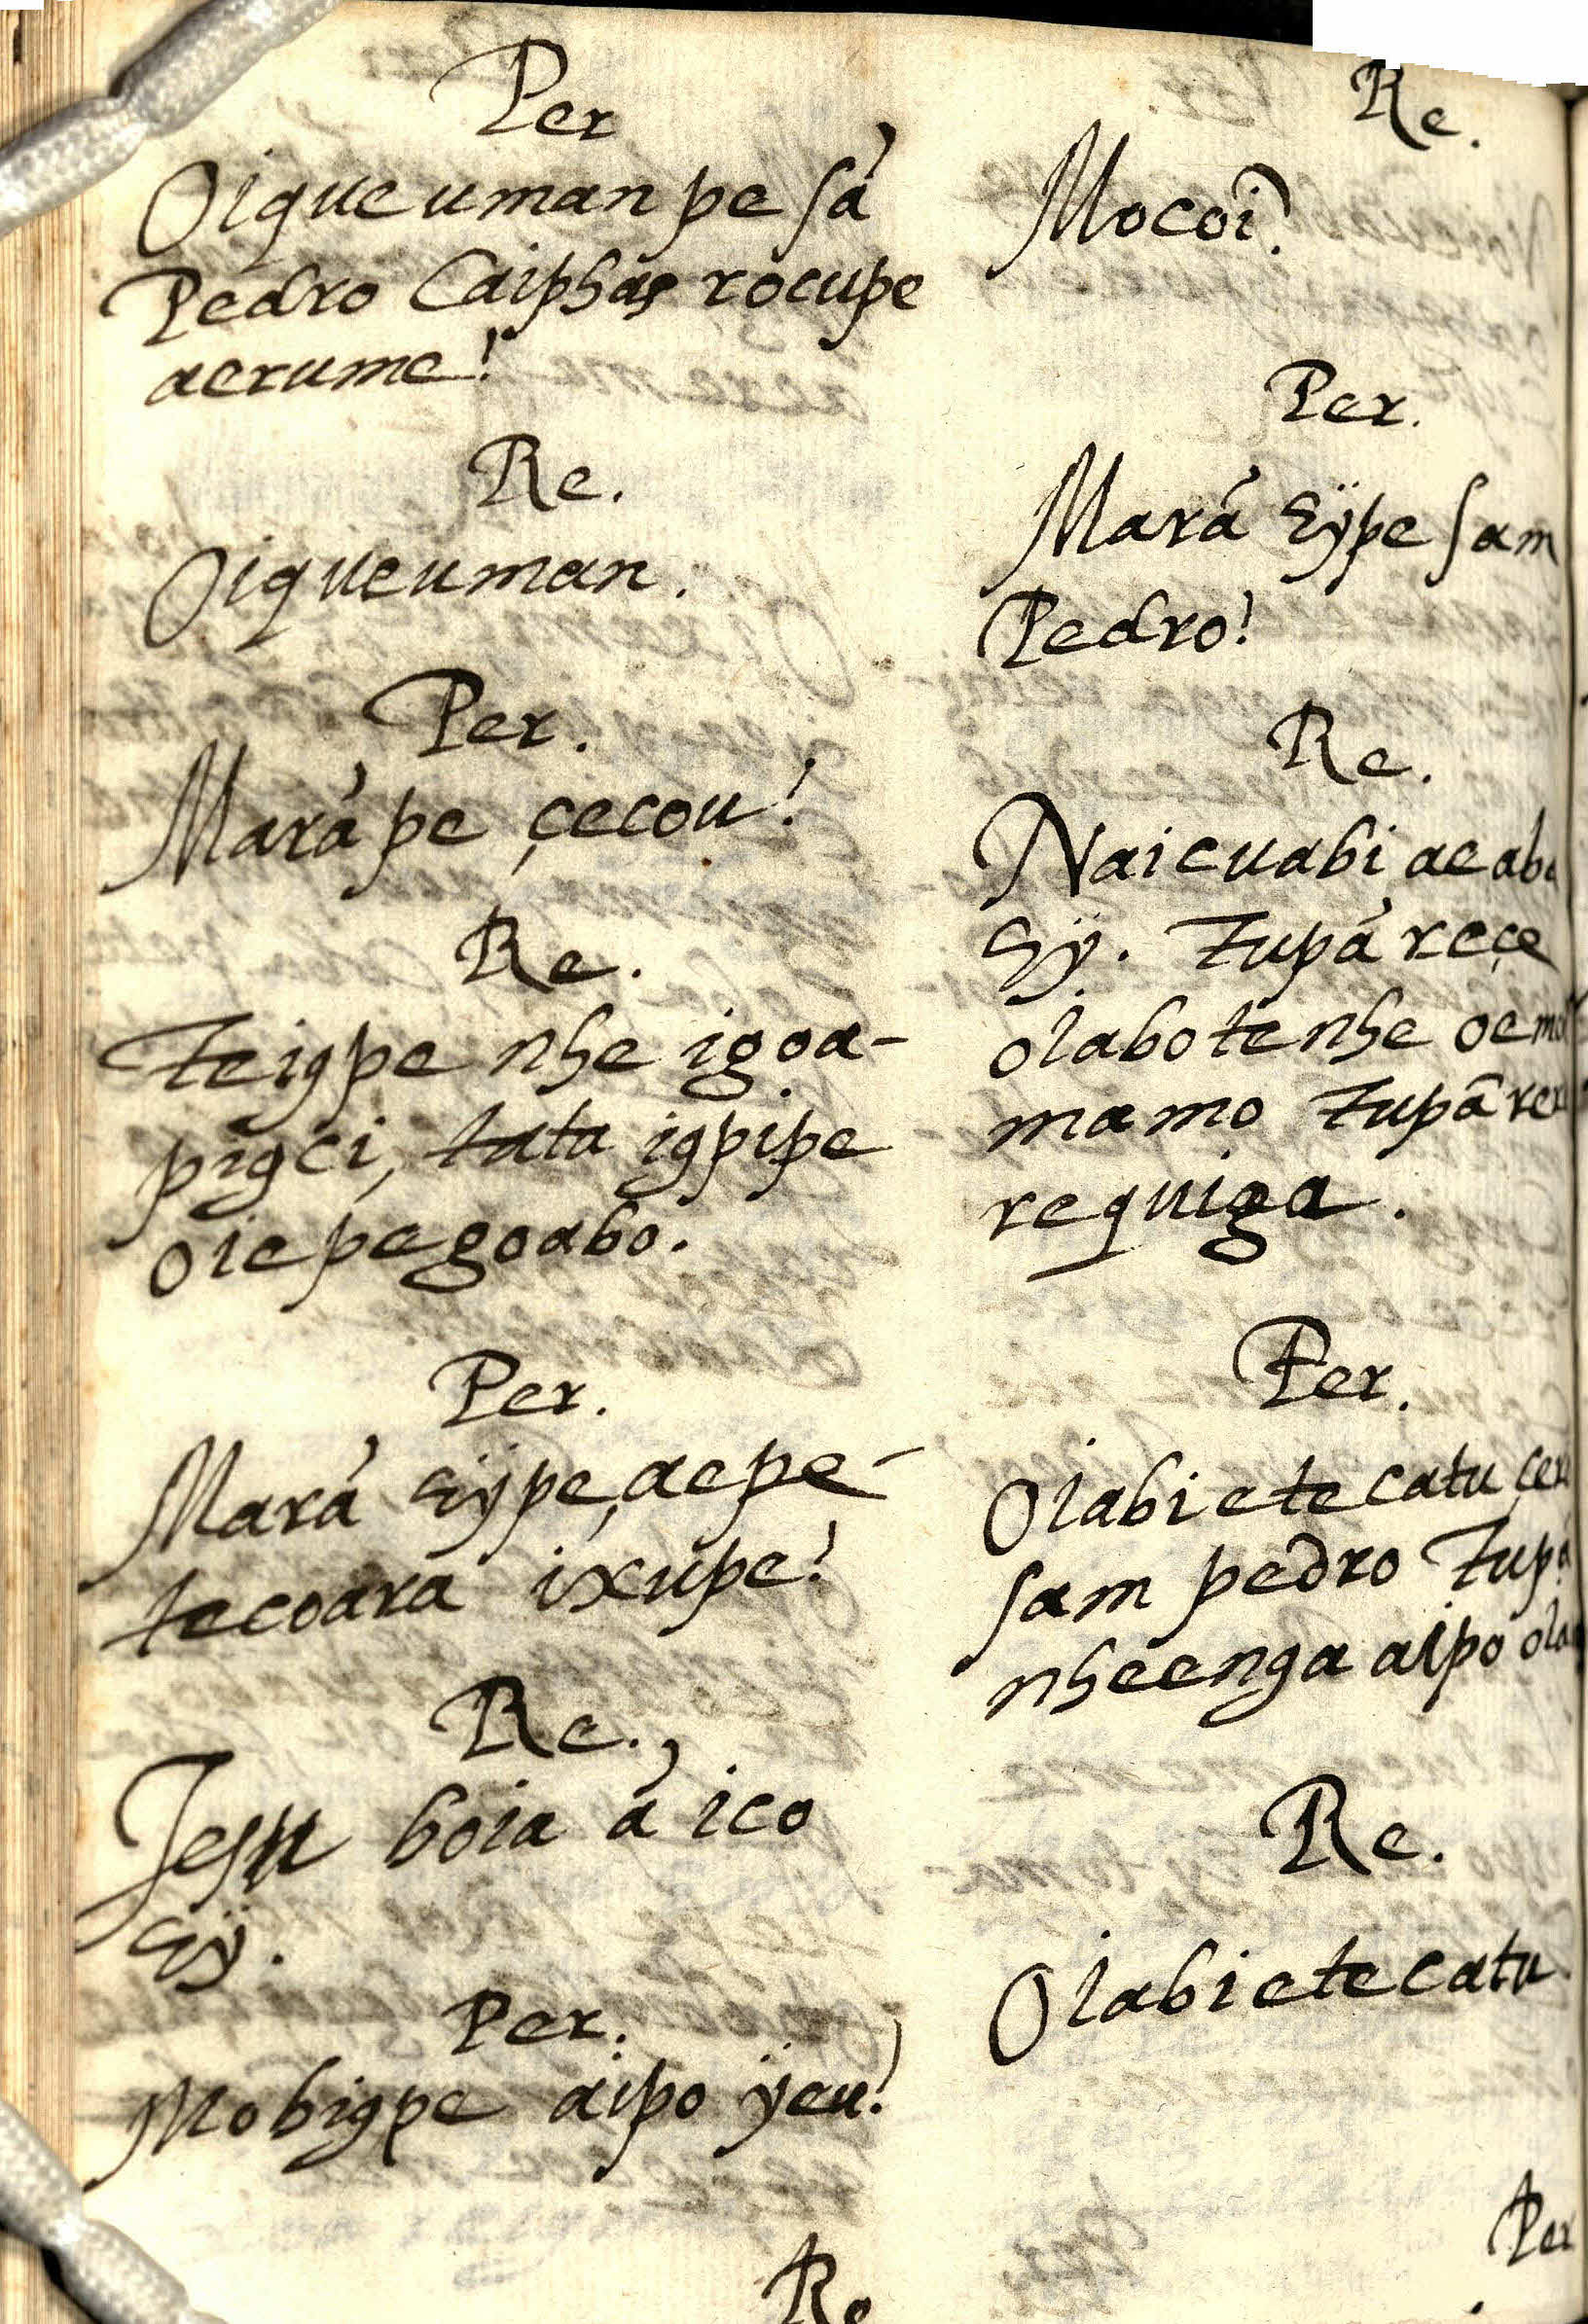 Per
Oique uman pe sá
Pedro Caiphas rocupe
aerume!
Re.
Oique uman.
Per.
Marápe çecou!
Re.
Teigpe nhe igoa-
pigci, tata igpipe
oiepegoabo.
Per.
Mará eÿpe, aepe-
tecoara ixupe!
Re.
Jesu boia á ico
eÿ.
Per.
Mobigpe aipo ÿeu!
Re
Re.
Mocoi.
Per.
Mará eÿpe sam
Pedro!
Re.
Naicuabi ae aba
eÿ. Tupá reçe
oiabo tenhe
mamo Tupã
requiga.
Per.
Oiabi etecatu
sam pedro Tupá
nheenga aipo
Re.
Oiabi etecatu.
Per